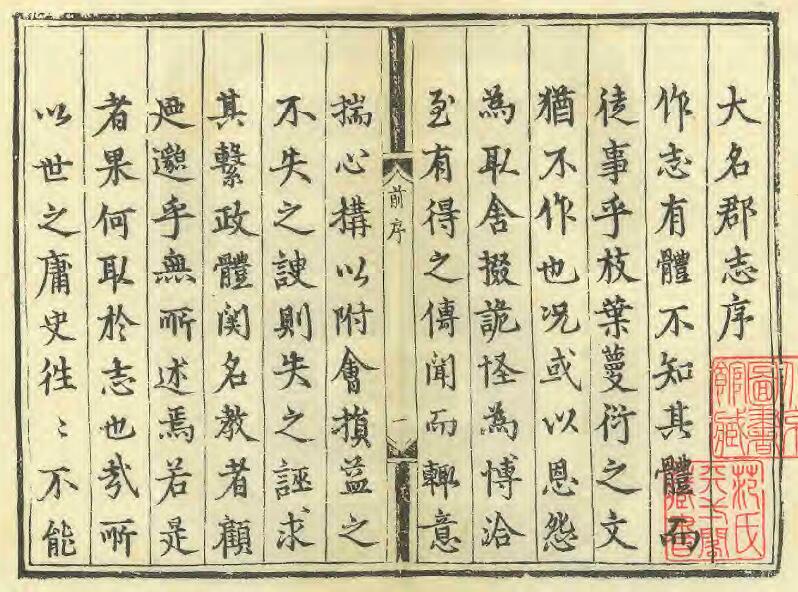 大名郡志序
作志有體不知其體而
徒事乎枝葉蔓衍之文
猶不作也况或以恩怨
為取舍掇詭怪為愽洽
至有得之傳聞而輙意
前序
一
揣心構以附會損益之
不失之諛則失之誣求
其繫政體関名教者顧
迯邈乎無所述焉若是
者果何取於志也㢤所
以世之庸史徃〻不能
圖書
范氏
天一閣
藏書